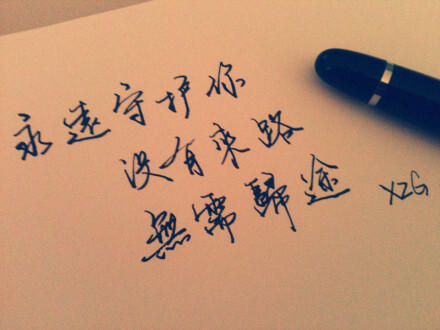 永遠守护你
没有來路
無需歸途 XZG